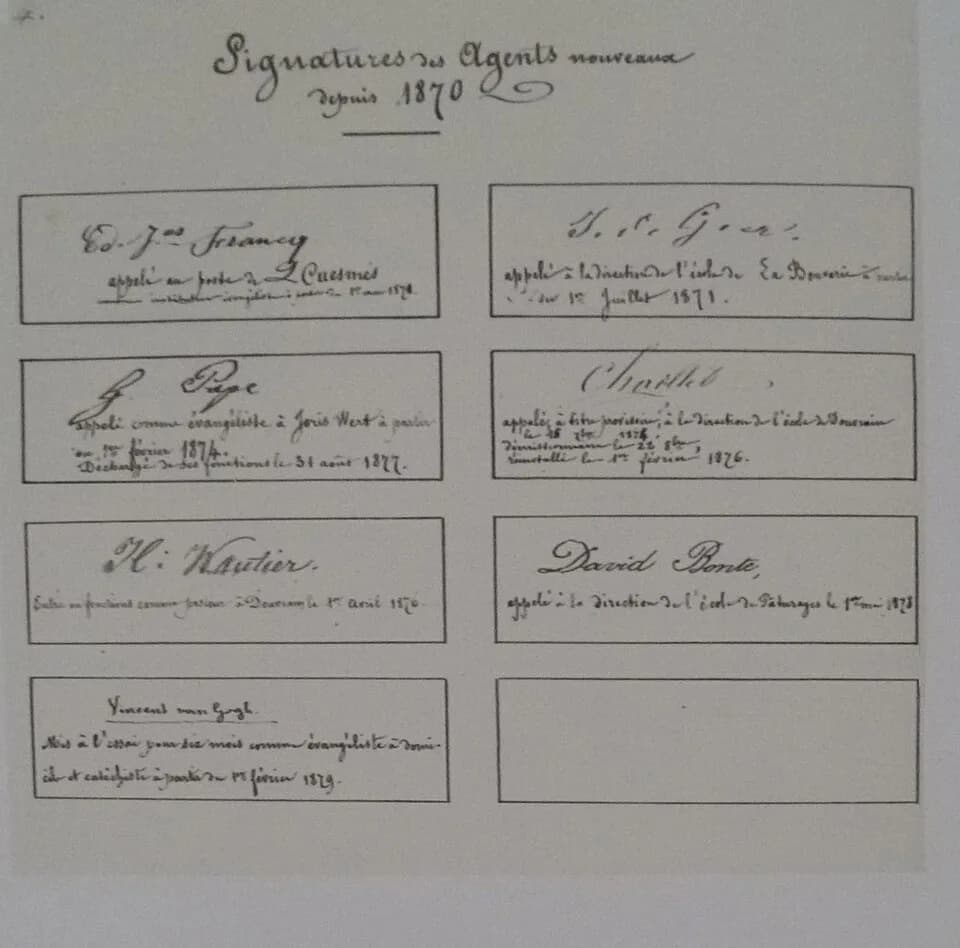 Signatures des Agents nouveaux
depuis 1870
Ed. Jas Francq
appelé au poste de Cuesmes
1er 1878.
appelé à la direction de l'école de La Bouverie à
du 1er Juillet 1871.
G Pape
appelé comme évangéliste à Joris Wert à partir
du 1er février 1874.
Déchargé de ses fonctions le 31 août 1877.
appelé, à titre provisoire, à la direction de l'école de Dourain
le
démissionnaire le 22 8bre,
réinstallé le 1er février 1876.
H: Wautier.
Entré en fonctions comme pasteur à Dour le 1er Avril 1876.
David Bonte,
appelé à la direction de l'école de Pâturages le 1er mai 1878
Vincent van Gogh.
Mis à l'essai pour six mois comme évangéliste à domi-
cile et catéchiste à partir du 1er février 1879.